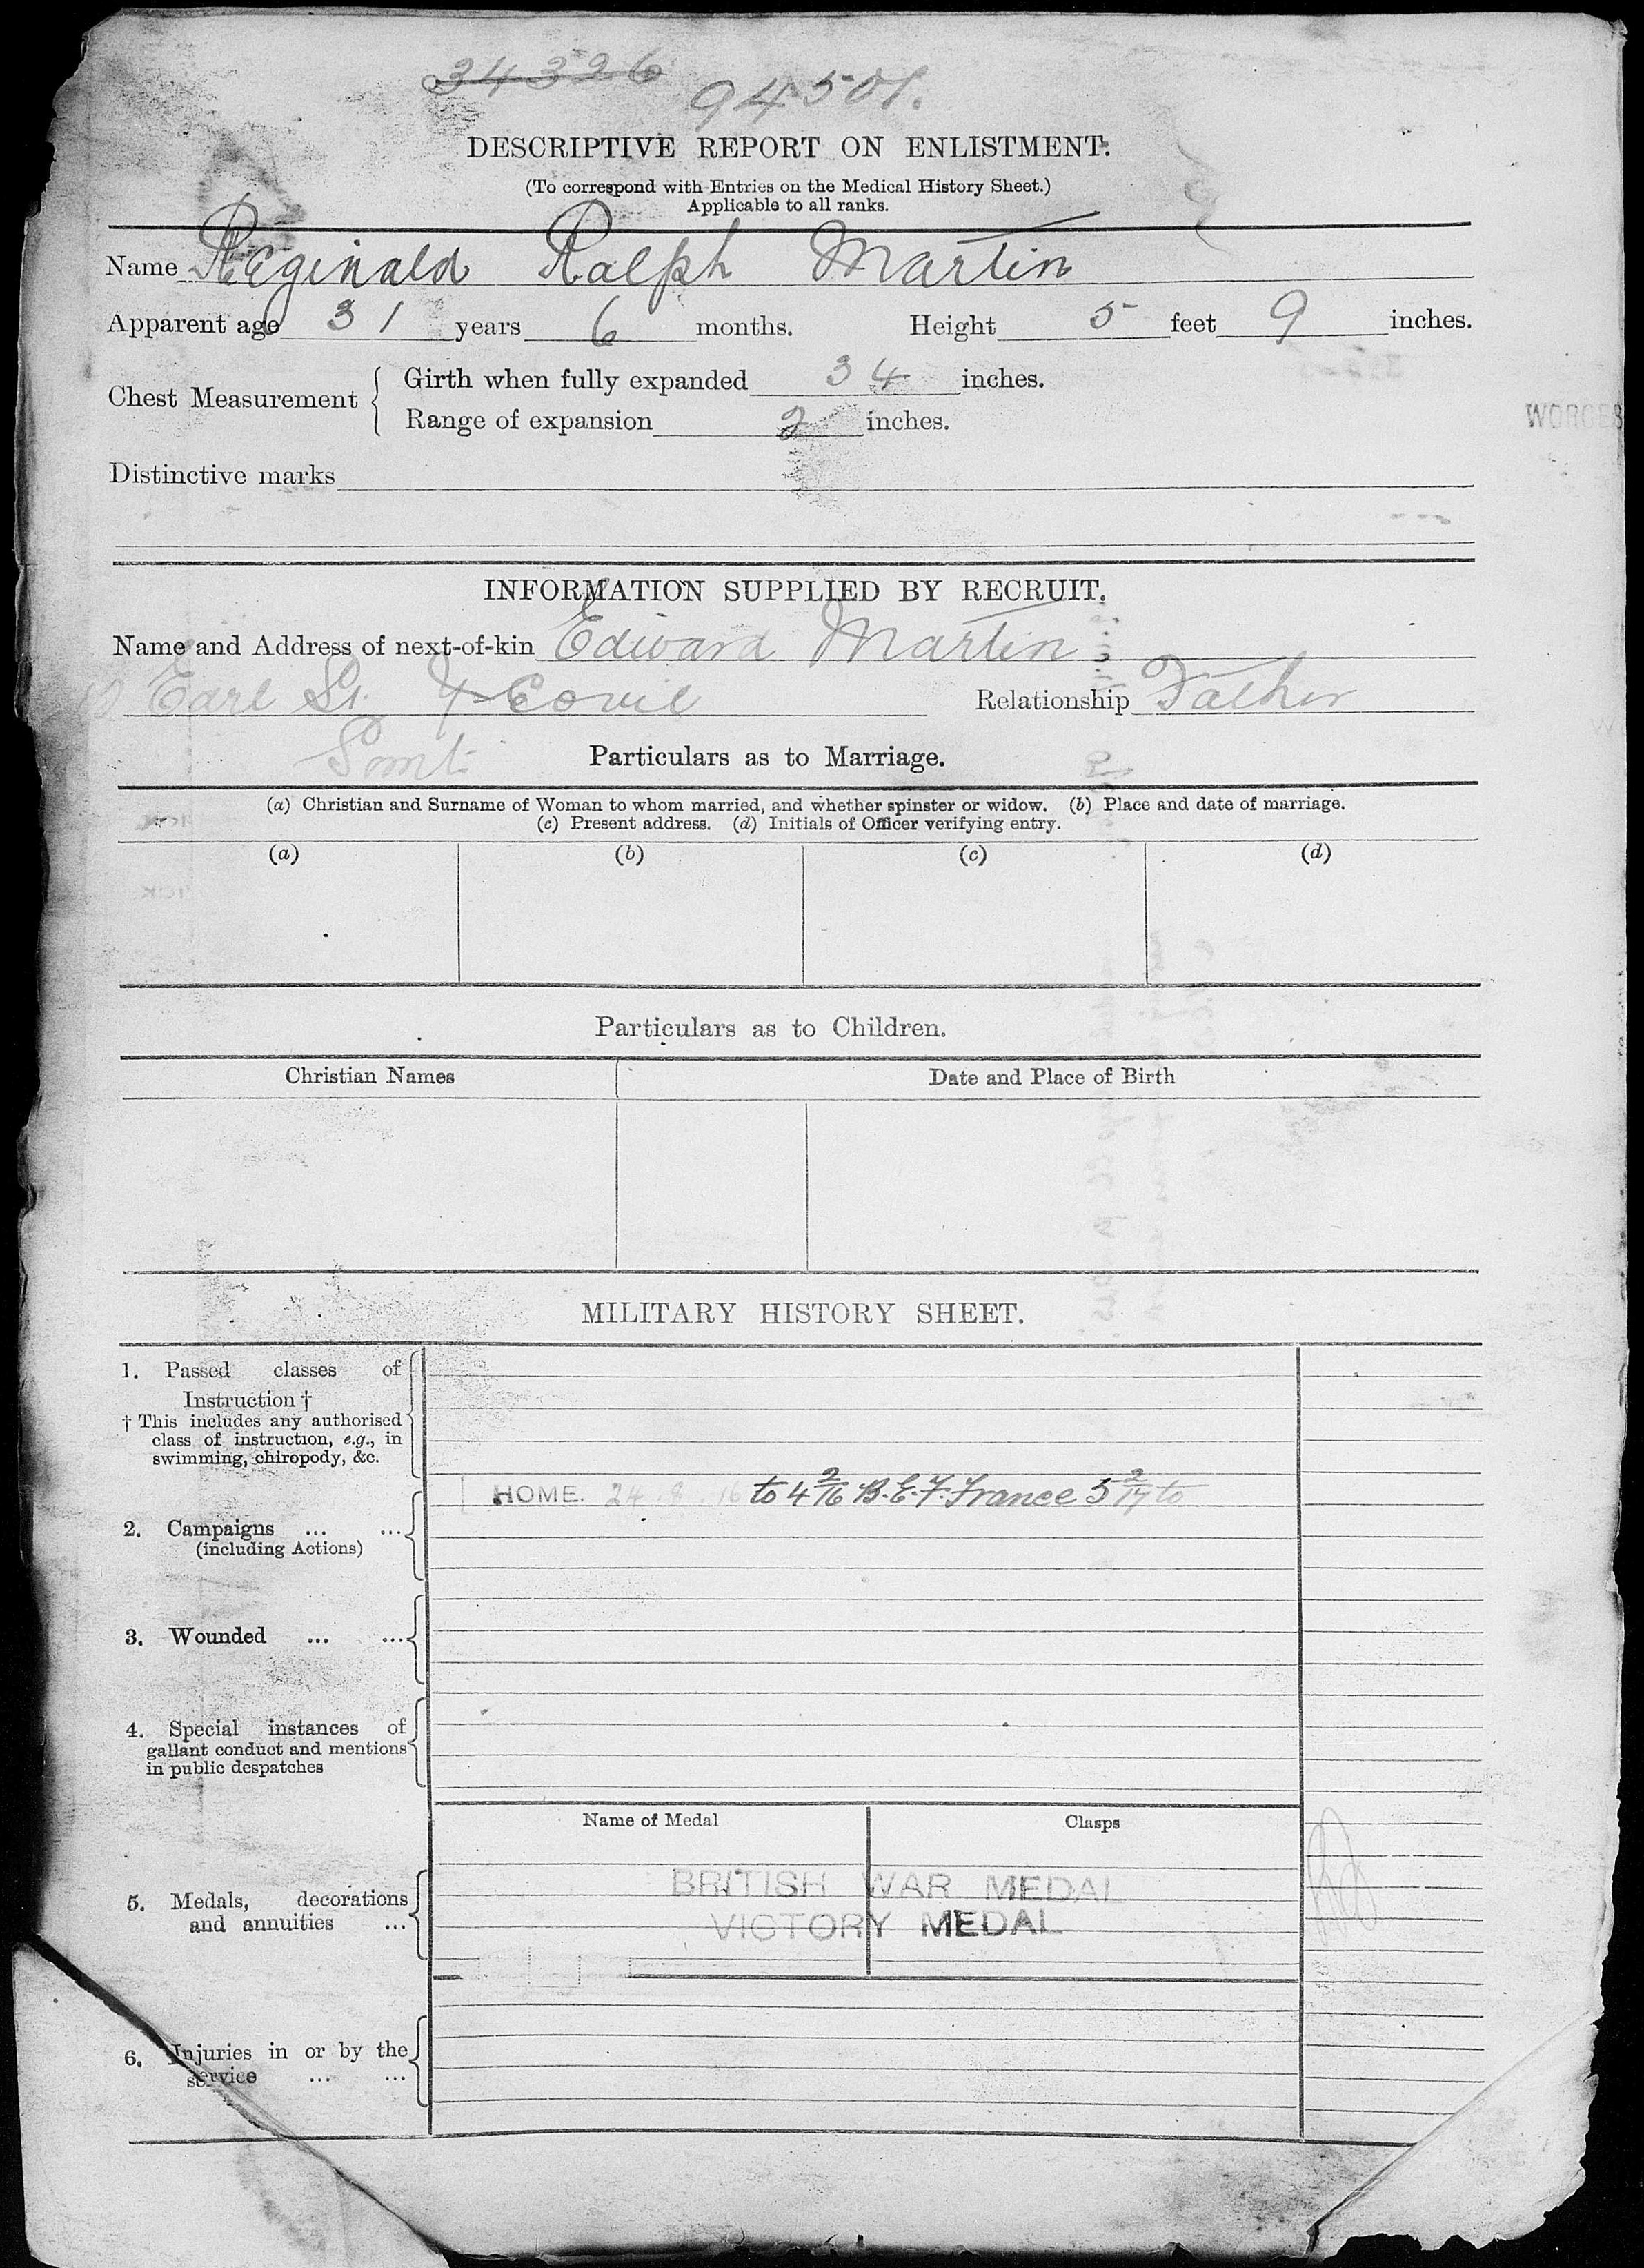 34326
94501.
DESCRIPTIVE REPORT ON ENLISTMENT.
(To correspond with Entries on the Medical History Sheet.)
Applicable to all ranks.
Name Reginald Ralph Martin
Apparent age 31 years 6 months. Height 5 feet 9 inches.
Chest Measurement { Girth when fully expanded 34 inches.
Range of expansion 2 inches.
WORCES
Distinctive marks
INFORMATION SUPPLIED BY RECRUIT.
Name and Address of next-of-kin Edward Martin
Earl St. Yeovil Relationship Father
Somt.
Particulars as to Marriage.
(a) Christian and Surname of Woman to whom married, and whether spinster or widow. (b) Place and date of marriage.
(c) Present address. (d) Initials of Officer verifying entry.
(a) (b) (c) (d)
Particulars as to Children.
Christian Names Date and Place of Birth
MILITARY HISTORY SHEET.
1. Passed classes of
Instruction †
† This includes any authorised
class of instruction, e.g., in
swimming, chiropody, &c.
HOME. 24.8.16 to 4 2/16 B.E.F. France 5 2/17 to
2. Campaigns ... ...
(including Actions)
3. Wounded ... ...
4. Special instances of
gallant conduct and mentions
in public despatches
Name of Medal Clasps
BRITISH WAR MEDAL
5. Medals, decorations
and annuities ...
VICTORY MEDAL
6. Injuries in or by the
service ... ...